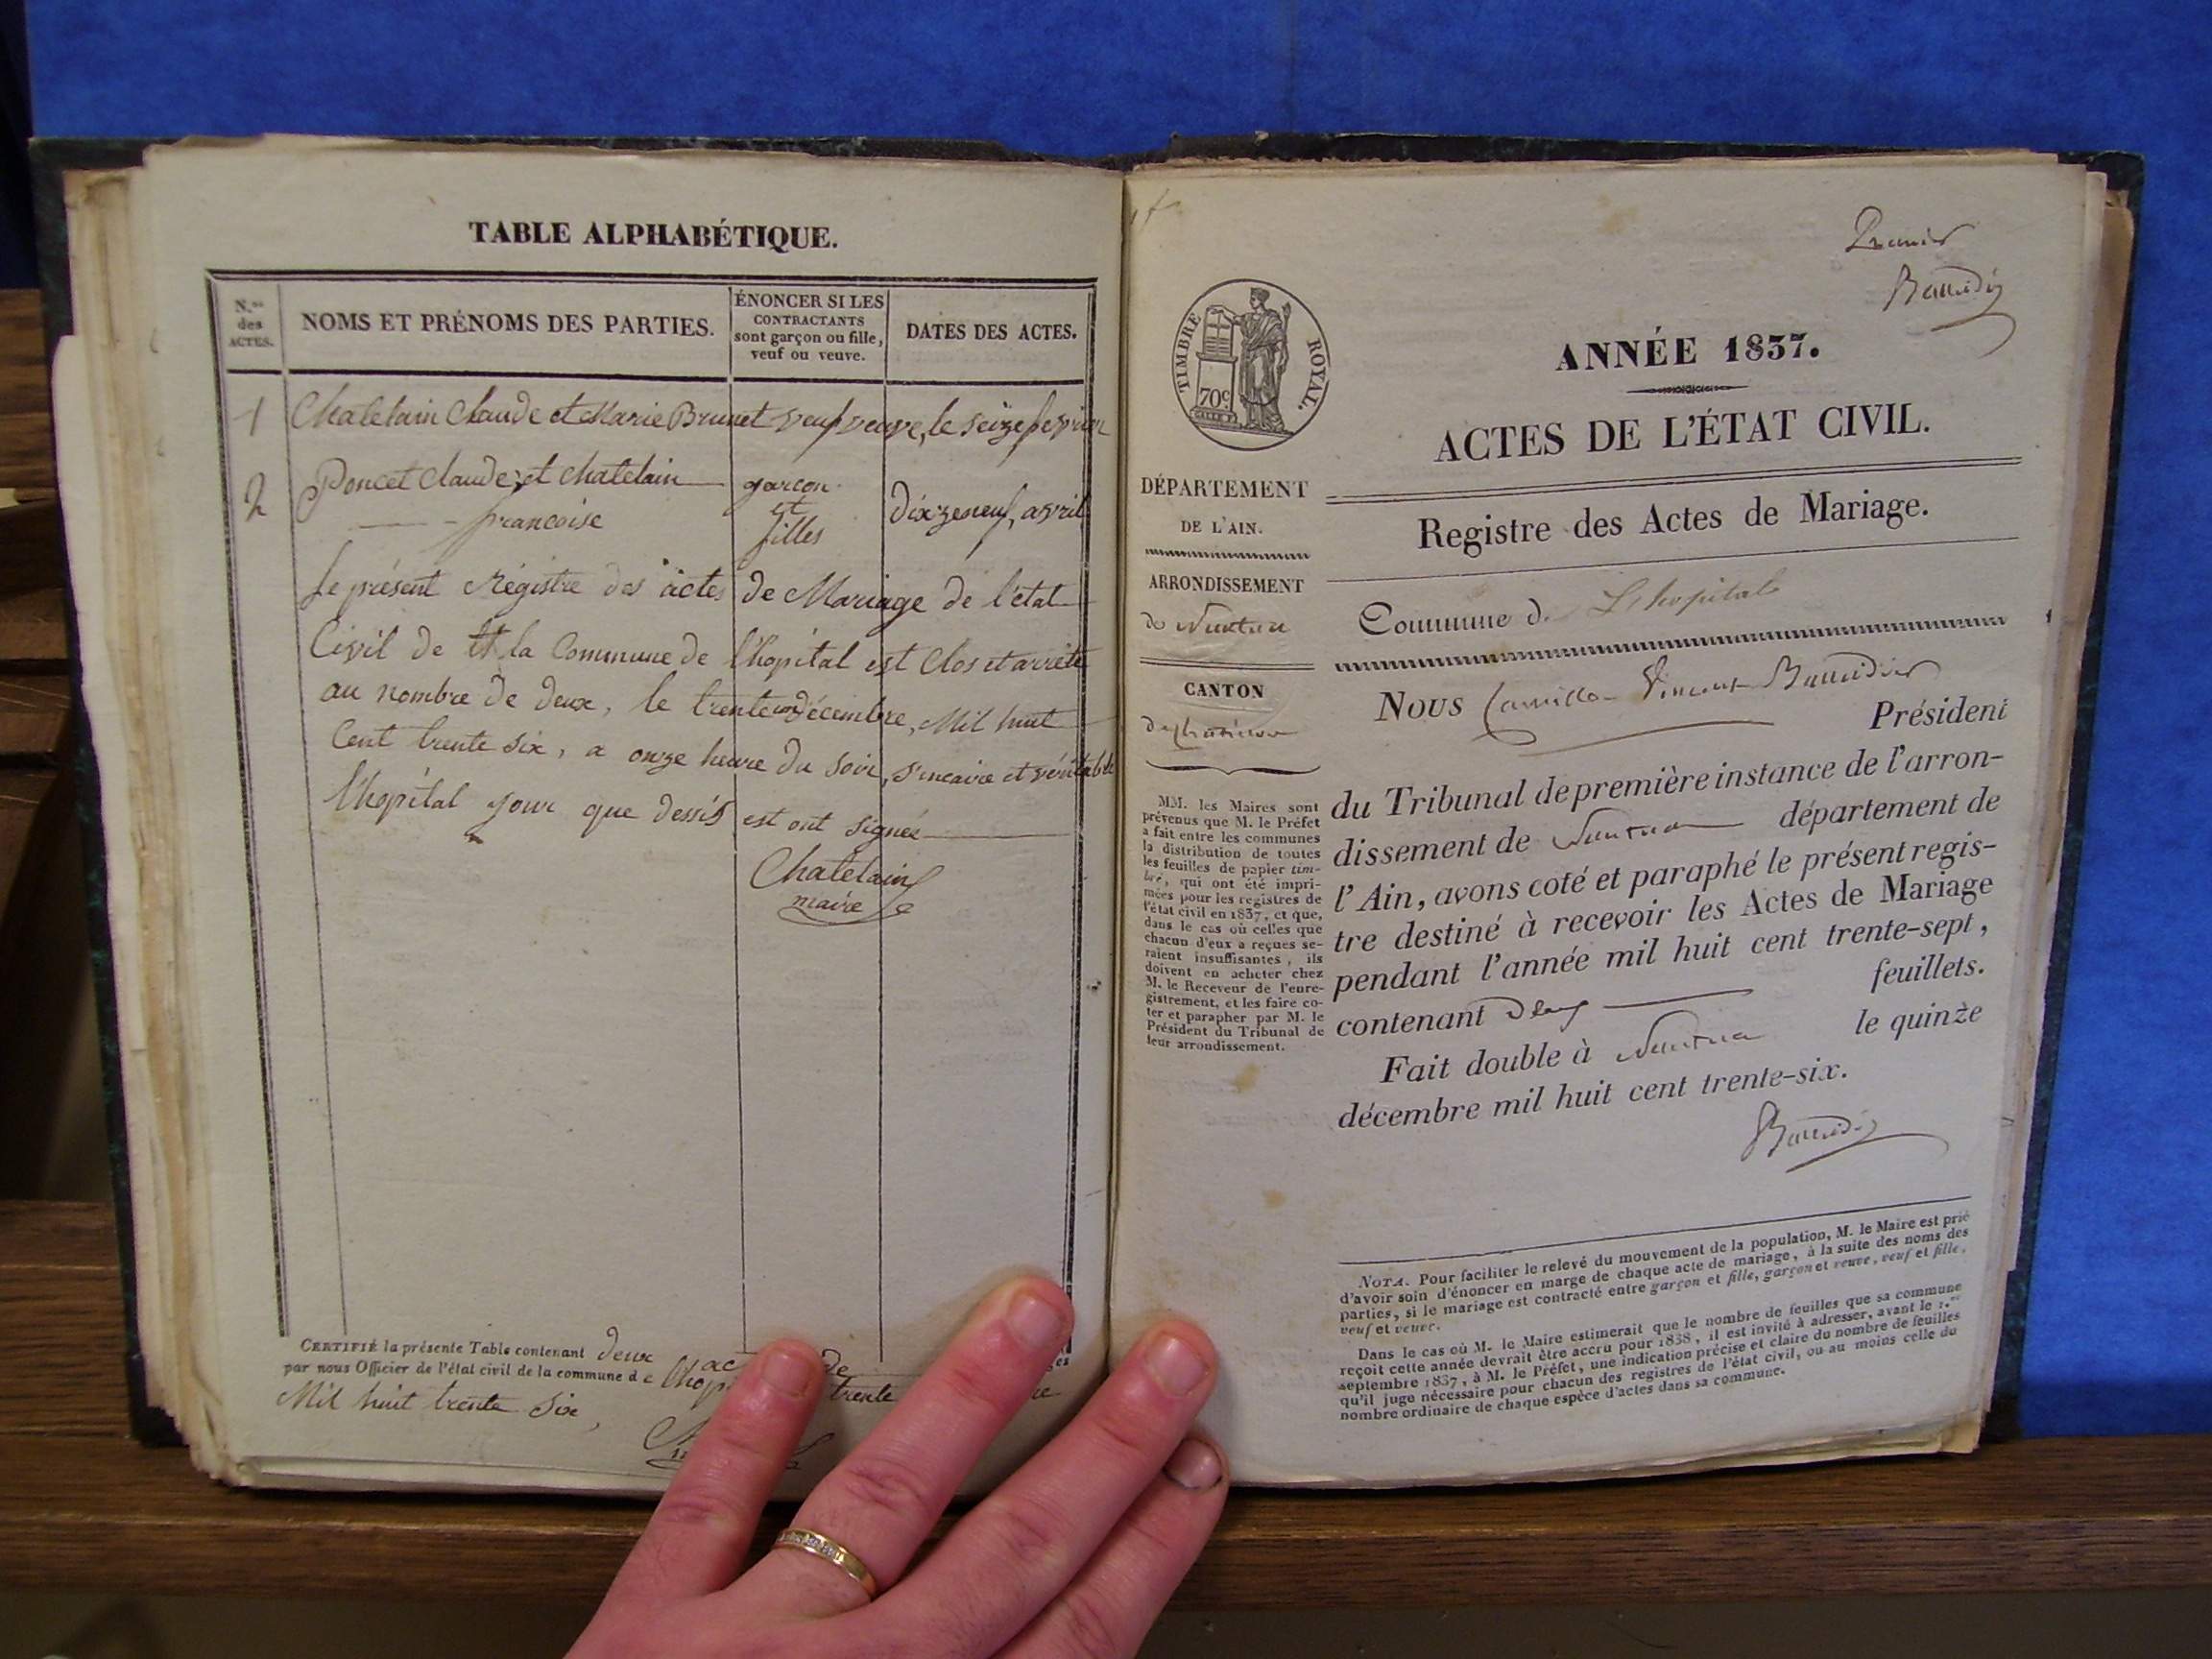 TABLE ALPHABÉTIQUE.
N.os des ACTES.
NOMS ET PRÉNOMS DES PARTIES.
ÉNONCER SI LES
CONTRACTANTS
sont garçon ou fille,
veuf ou veuve.
DATES DES ACTES.
1 Chatelain Claude et Marie Brunet veuf veuve, le seize fevrier
2 Poncet Claude, et Chatelain
francoise
garcon
et
filles
Dixzeneuf, avril
Le présent Régistre des actes de Mariage de l'état
Civil de la Commune de l'hopital est Clos et arrêté
au nombre de deux, le trente un décembre, Mil huit
Cent trente six, a onze heure du soir, sincaire et véritable
l'hopital jour que dessus est ont signée
Chatelain
maire
CERTIFIÉ la présente Table contenant deux ac de
par nous Officier de l'état civil de la commune de lhop trente
Mil huit trente Six,
Premier
ANNÉE 1837.
TIMBRE ROYAL.
70c
ACTES DE L'ÉTAT CIVIL.
DÉPARTEMENT
DE L'AIN.
ARRONDISSEMENT
de Nantua
CANTON
MM. les Maires sont
prévenus que M. le Préfet
a fait entre les communes
la distribution de toutes
les feuilles de papier tim-
bré, qui ont été impri-
mées pour les registres de
l'état civil en 1837, et que,
dans le cas où celles que
chacun d'eux a reçues se-
raient insuffisantes, ils
doivent en acheter chez
M. le Receveur de l'enre-
gistrement, et les faire co-
ter et parapher par M. le
Président du Tribunal de
leur arrondissement.
Registre des Actes de Mariage.
Commune d. L'hopital
Nous Camille Vincent Président
du Tribunal de première instance de l'arron-
dissement de Nantua département de
l'Ain, avons coté et paraphé le présent regis-
tre destiné à recevoir les Actes de Mariage
pendant l'année mil huit cent trente-sept,
contenant deux feuillets.
Fait double à Nantua le quinze
décembre mil huit cent trente-six.
NOTA. Pour faciliter le relevé du mouvement de la population, M. le Maire est prié
d'avoir soin d'énoncer en marge de chaque acte de mariage, à la suite des noms des
parties, si le mariage est contracté entre garçon et fille, garçon et veuve, veuf et fille,
veuf et veuve.
Dans le cas où M. le Maire estimerait que le nombre de feuilles que sa commune
reçoit cette année devrait être accru pour 1838, il est invité à adresser, avant le 1.er
septembre 1837, à M. le Préfet, une indication précise et claire du nombre de feuilles
qu'il juge nécessaire pour chacun des registres de l'état civil, ou au moins celle du
nombre ordinaire de chaque espèce d'actes dans sa commune.